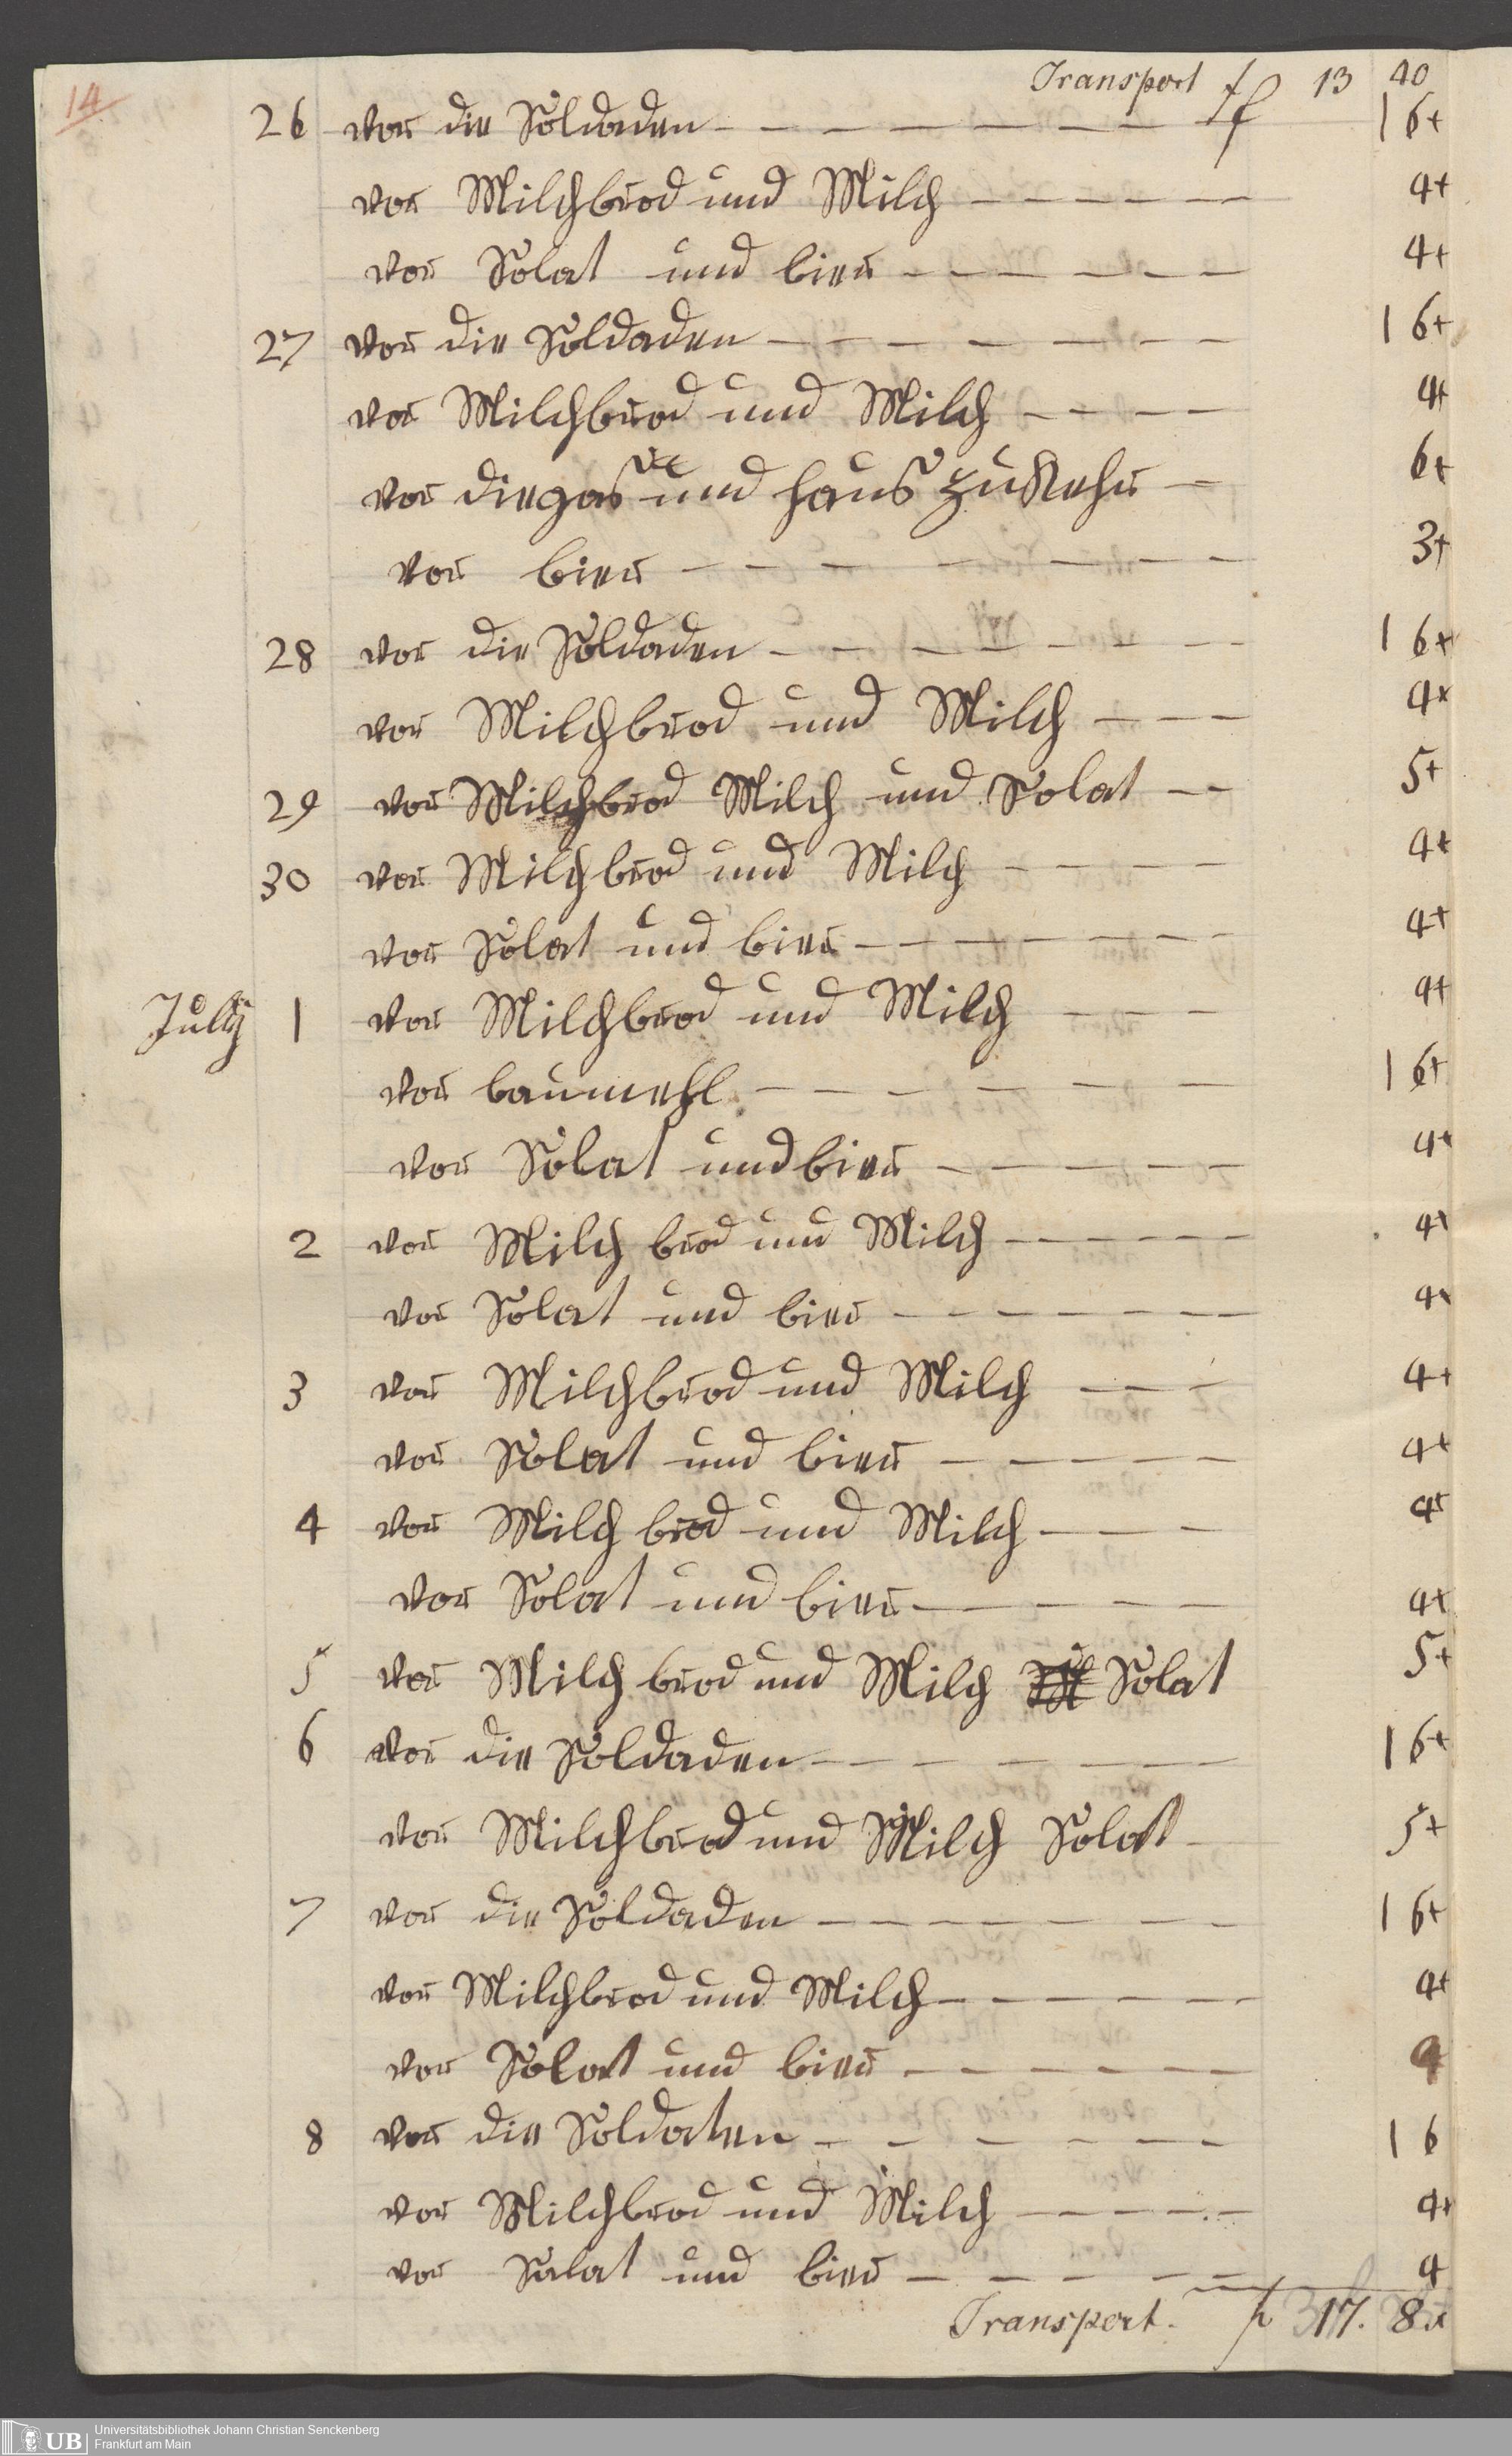 14
Transport f 13 40
26 vor die Soldaden 16+
vor Milchbrod und Milch 4+
vor Solat und bier 4+
27 vor die Soldaden 16+
vor Milchbrod und Milch 4+
vor die gas und haus zu Kehr 6+
vor bier 3+
28 vor die Soldaden 16+
vor Milchbrod und Milch 4x
29 vor Milchbrod Milch und Solat 5+
30 vor Milchbrod und Milch 4+
vor Solat und bier 4+
July 1 vor Milchbrod und Milch 4+
vor baumehl 16+
vor Solat und bier 4+
2 vor Milch brod und Milch 4+
vor Solat und bier 4x
3 vor Milchbrod und Milch 4+
vor Solat und bier 4+
4 vor Milch brod und Milch 4+
vor Solat und bier 4+
5 vor Milch brod und Milch Solat 5+
6 vor die Soldaden 16+
vor Milchbrod und Milch Solat 5+
7 vor die Soldaden 16+
vor Milchbrod und Milch 4+
vor Solat und bier 4
8 vor die Soldaten 16
vor Milchbrod und Milch 4+
vor Salat und bier 4
Transport. f 17. 8x
UB Universitätsbibliothek Johann Christian Senckenberg
Frankfurt am Main